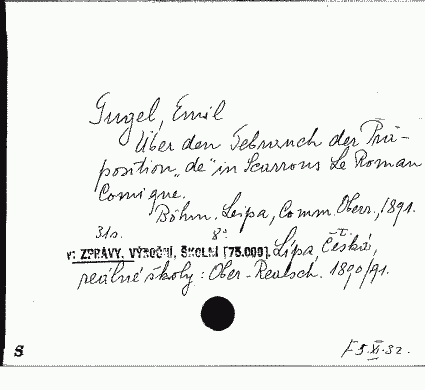 Gugel, Emil
Über den Gebrauch der Prä-
position „de" in Scarrons Le Roman
Comique.
Böhm. Leipa, Comm. Oberr., 1891.
31s. 8°
v: ZPRÁVY, VÝROČNÍ, ŠKOLNÍ [75.000]. Lípa, Česká,
reálné školy: Ober-Realsch. 1890/91.
S